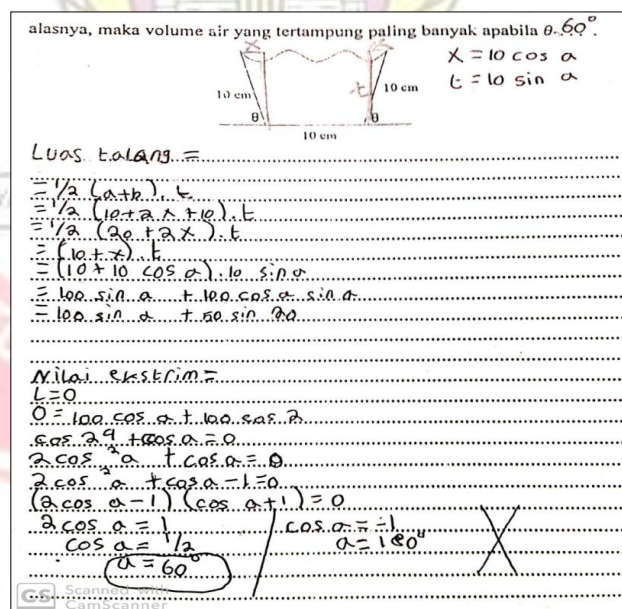 alasnya, maka volume air yang tertampung paling banyak apabila θ..60°.
x = 10 cos a
t = 10 sin a
x
t
10 cm
10 cm
θ
θ
10 cm
Luas talang =
= 1/2 (a+b). t
= 1/2 (10+2x+10). t
= 1/2 (20 + 2x). t
= (10 + x). t
= (10 + 10 cos a). 10 sin a
= 100 sin a + 100 cos a sin a
= 100 sin a + 50 sin 2a
Nilai ekstrim =
L=0
0 = 100 cos a + 100 cos 2
cos 2a + cos a = 0
2 cos ²a + cos a = 0
2 cos ²a + cos a - 1 = 0
(2 cos a - 1) (cos a + 1) = 0
2 cos a = 1 / cos a = -1
cos a = 1/2 a = 180°
a = 60°
CS Scanned with
CamScanner